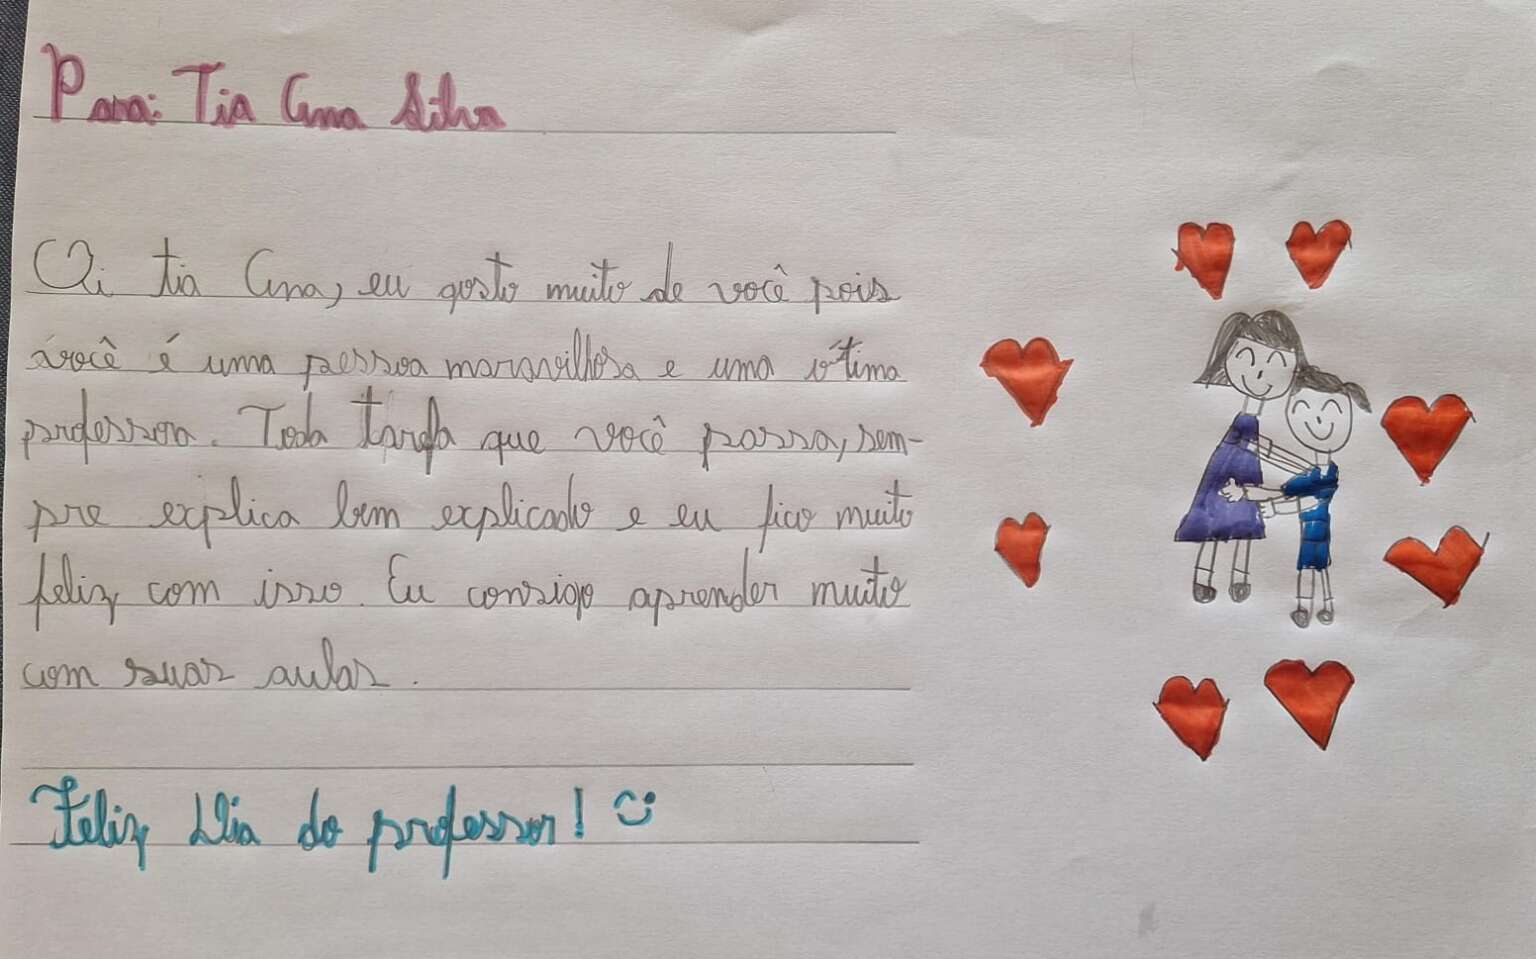 Para: Tia Ana Silva
Oi tia Ana, eu gosto muito de você pois
você é uma pessoa maravilhosa e uma ótima
professora. Toda tarefa que você passa, sem-
pre explica bem explicado e eu fico muito
feliz com isso. Eu consigo aprender muito
com suas aulas.
Feliz Dia do professor! :)